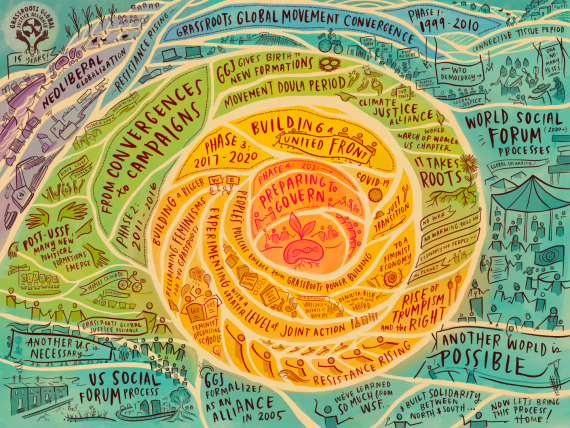 GRASSROOTS GLOBAL
JUSTICE ALLIANCE
15 YEARS!
NEOLIBERAL
GLOBALIZATION
RESISTANCE RISING...
GRASSROOTS GLOBAL MOVEMENT CONVERGENCE
PHASE 1:
1999-2010
CONNECTIVE TISSUE PERIOD
WTO
DEMOCRACY
WORLD SOCIAL
FORUM
PROCESSES
FROM CONVERGENCES
to CAMPAIGNS
PHASE 2:
2011-2016
GGJ GIVES BIRTH TO
NEW FORMATIONS
MOVEMENT DOULA PERIOD
CLIMATE
JUSTICE
ALLIANCE
WORLD
MARCH OF WOMEN
US CHAPTER
IT TAKES
ROOTS
NO WAR
NO WARMING
POST-USSF:
MANY NEW
POLITICAL
FORMATIONS
EMERGE
PHASE 3:
2017-2020
BUILDING a
UNITED FRONT
COVID-19
JUST
TRANSITION
TO A
FEMINIST
ECONOMY
RISE OF
TRUMPISM
AND the RIGHT
BUILDING A BIGGER
WE
EXPERIMENTING
WITH A
SHARPER
LEVEL of JOINT ACTION
GRASSROOTS POWER BUILDING
FEMINIST
SCHOOLS
RESISTANCE RISING
PHASE 4: 2021
PREPARING to
GOVERN
GRASSROOTS GLOBAL
JUSTICE ALLIANCE
ANOTHER US is
NECESSARY
US SOCIAL
FORUM PROCESS
GGJ
FORMALIZES
AS AN
ALLIANCE
IN 2005
WE'VE LEARNED
SO MUCH FROM
WSF...
BUILT SOLIDARITY
BETWEEN
NORTH & SOUTH...
NOW LET'S BRING
THIS PROCESS
HOME!
ANOTHER WORLD is
POSSIBLE